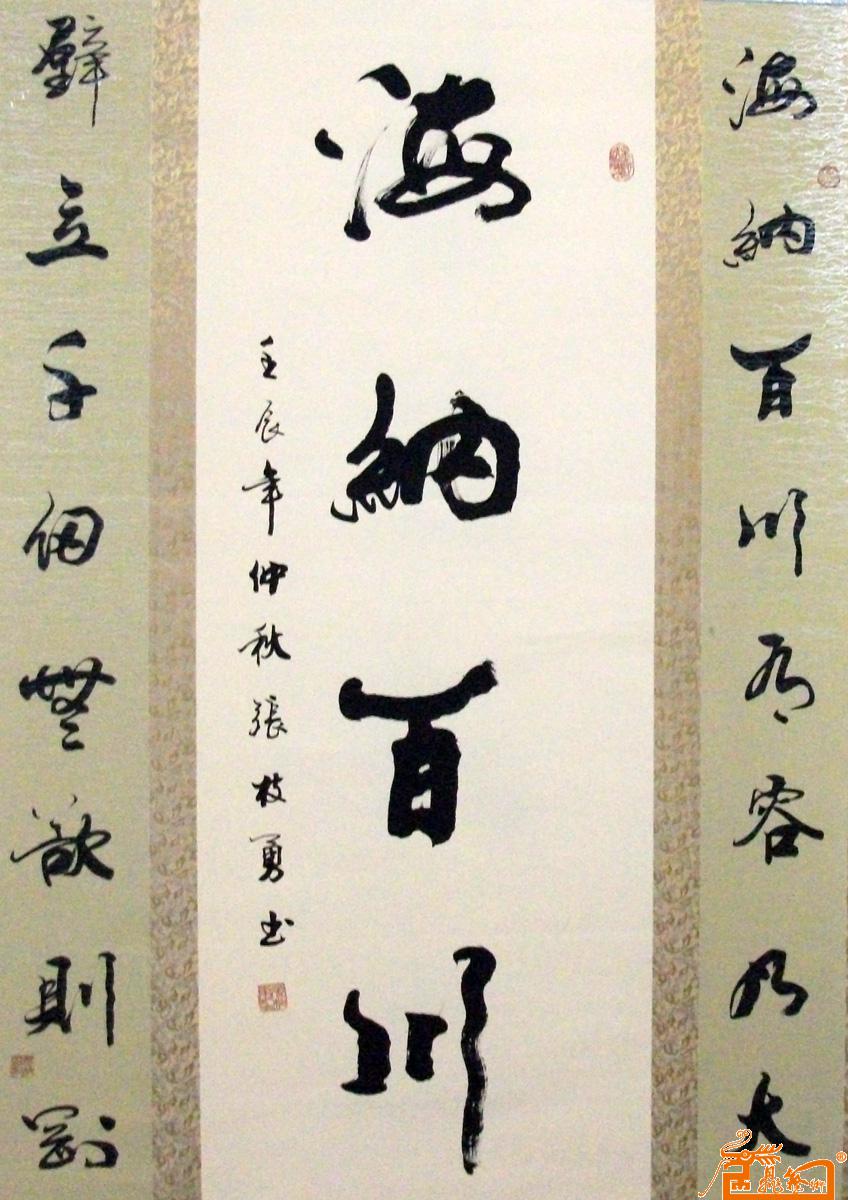 海納百川有容乃大
海納百川
壬辰年仲秋張枝勇書
壁立千仞無欲則剛